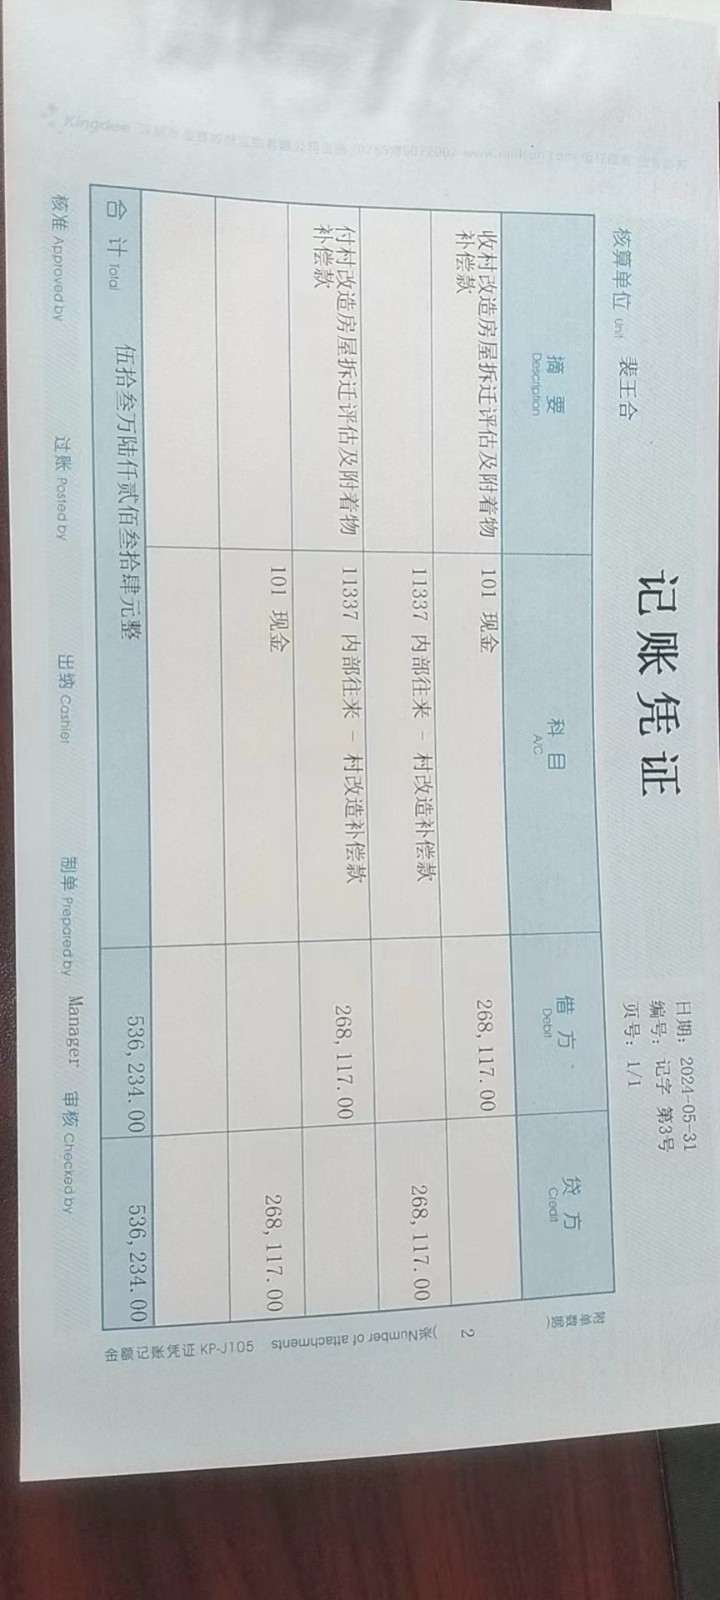 Kingdee
记账凭证
日期：2024-05-31
编号：记字 第3号
页号：1/1
核算单位 Unit 裴王合
摘要 Description 科目 A/C 借方 Debit 贷方 Credit
收村改造房屋拆迁评估及附着物补偿款 101 现金 268,117.00
11337 内部往来 - 村改造补偿款 268,117.00
付村改造房屋拆迁评估及附着物补偿款 11337 内部往来 - 村改造补偿款 268,117.00
101 现金 268,117.00
合计 Total 伍拾叁万陆仟贰佰叁拾肆元整 536,234.00 536,234.00
附单数据（ 2 张）Number of attachments
金额记账凭证 KP-J105
核准 Approved by 过账 Posted by 出纳 Cashier 制单 Prepared by Manager 审核 Checked by